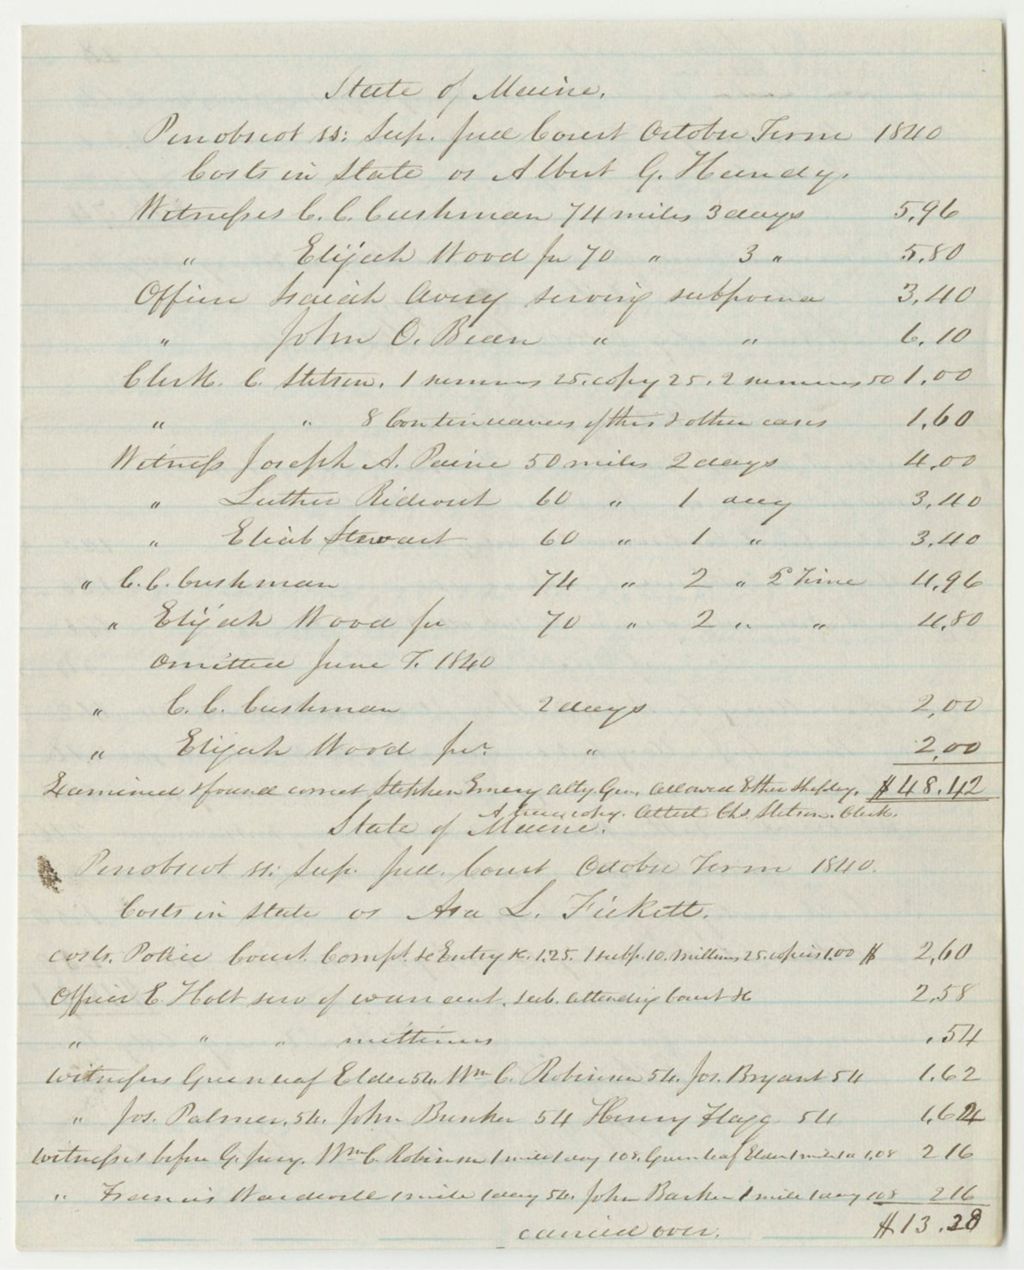 State of Maine.
Penobscot ss: Sup. Jud Court October Term 1840
Costs in State vs Albert G. Handy.
Witnesses C. C. Cushman 74 miles 3 days 5,96
" Elijah Wood Jr 70 " 3 " 5.80
Officer Isaiah Avery serving subpoena 3,40
" John O. Bean " " 6.10
Clerk C. Stetson. 1 summons 25. copy 25. 2 summons 50 1,00
" " 8 Continuances of this & other cases 1,60
Witness Joseph A. Paine 50 miles 2 days 4,00
" Luther Rideout 60 " 1 day 3,40
" Eliab Stewart 60 " 1 " 3.40
" C. C. Cushman 74 " 2 " 2d Time 4,96
" Elijah Wood Jr 70 " 2 " " 4,80
omitted June T. 1840
" C. C. Cushman 2 days 2,00
" Elijah Wood Jr. " 2,00
Examined & found correct Stephen Emery Atty. Gen. Allowed Ether Shepley. $48.42
A true copy. Attest Chs. Stetson. Clerk.
State of Maine.
Penobscot ss: Sup. Jud. Court October Term 1840.
Costs in State vs Asa L. Fickett.
costs. Police Court. Compt. & Entry &c. 1.25. 1 subp. 10. Mittimus 25. copies 1.00 $ 2,60
Officer E. Holt serv of warrant. sub. attending Court &c 2,58
" " " mittimus .54
Witnesses Greenleaf Elder 54. Wm C. Robinson 54. Jos. Bryant 54 1.62
" Jos. Palmer. 54. John Bunker 54 Henry Flagg 54 1,62
Witnesses before G. Jury. Wm C Robinson 1 mile 1 day 108. Greenleaf Elder 1 m 1 d 1,08 2 16
" Francis Wardwell 1 mile 1 day 54. John Barker 1 mile 1 day 108 2 16
carried over. $13.28